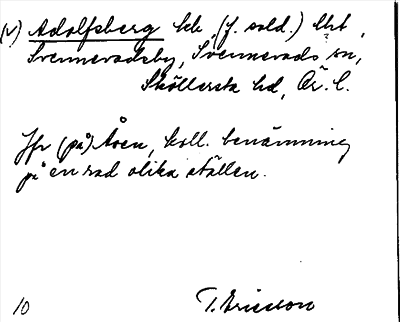 (v) Adolfsberg lht, (f. sold.) lht,
Svennevadsby, Svennevads sn,
Sköllersta hd, Ör. l.
Jfr (på) Åsen, koll. benämning
på en rad olika ställen.
10 T. Ericsson